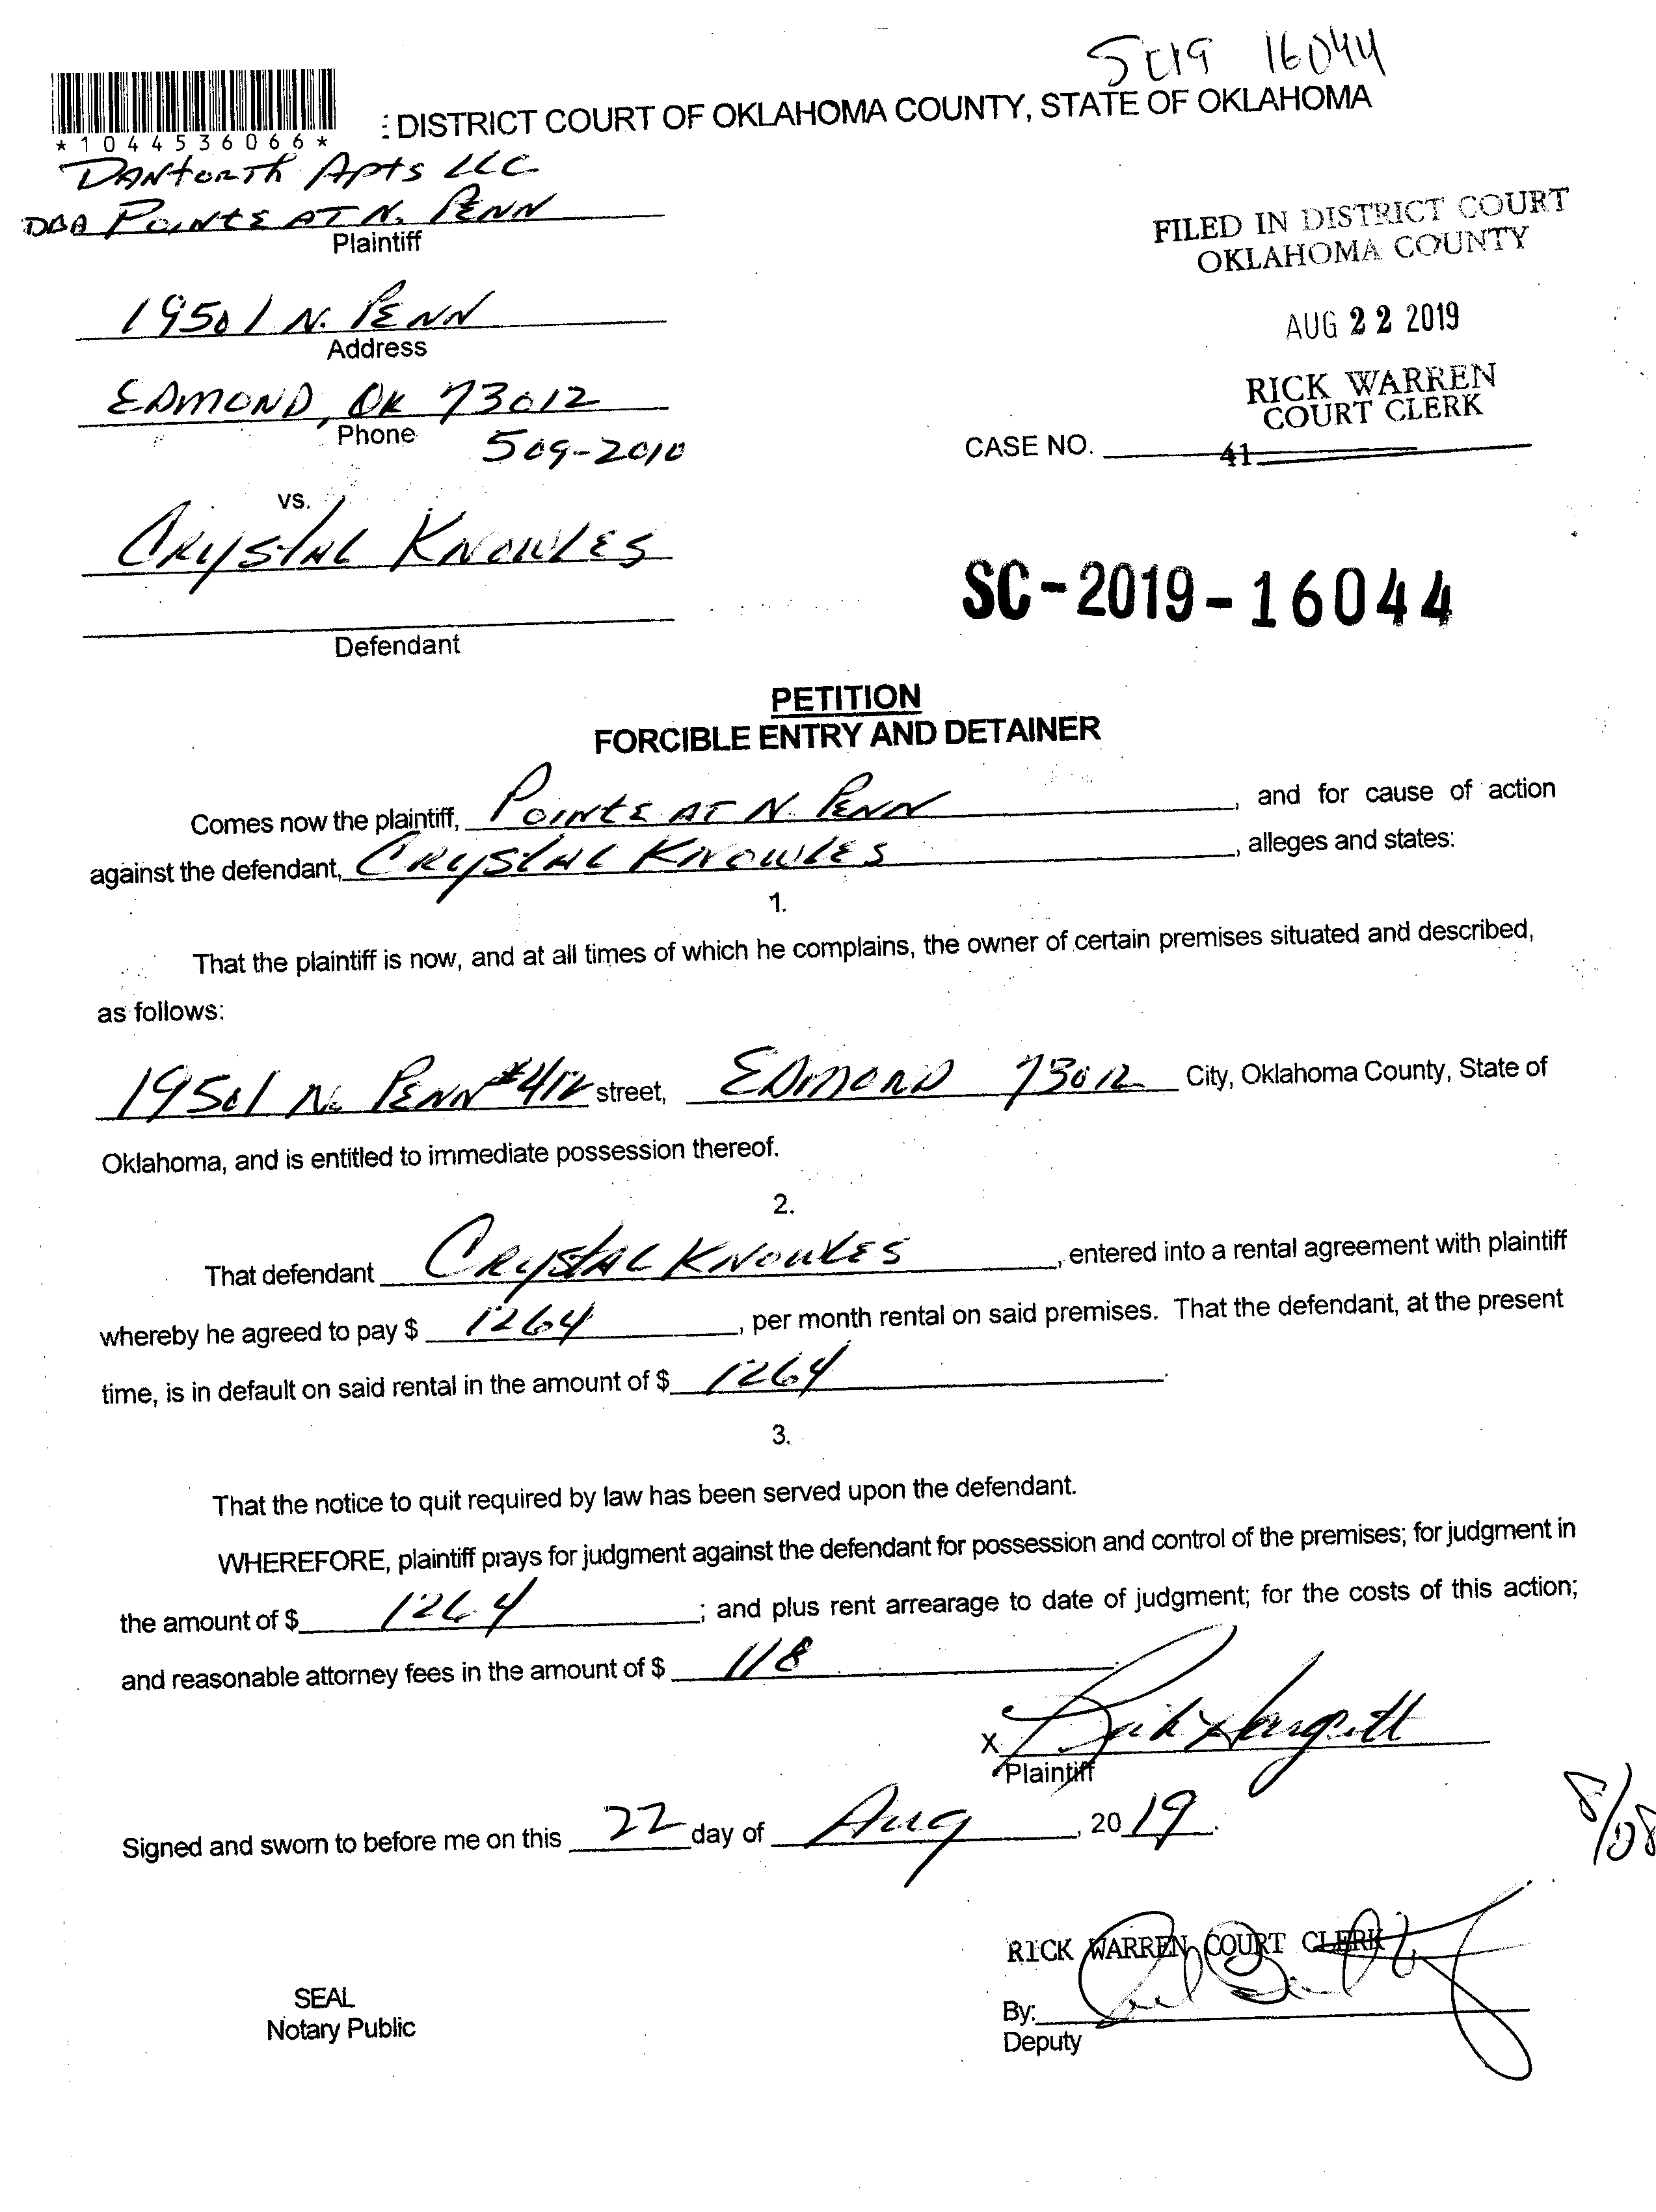 SC19 16044
: DISTRICT COURT OF OKLAHOMA COUNTY, STATE OF OKLAHOMA
*1044536066*
DANforth Apts LLC
DBA POINTE AT N. PENN
Plaintiff
FILED IN DISTRICT COURT
OKLAHOMA COUNTY
19501 N. PENN
Address
AUG 22 2019
RICK WARREN
COURT CLERK
EDMOND, OK 73012
Phone
509-2010
CASE NO. 41
vs.
CRYSTAL KNOWLES
SC-2019-16044
Defendant
PETITION
FORCIBLE ENTRY AND DETAINER
Comes now the plaintiff, POINTE AT N. PENN, and for cause of action
against the defendant, CRYSTAL KNOWLES, alleges and states:
1.
That the plaintiff is now, and at all times of which he complains, the owner of certain premises situated and described,
as follows:
19501 N. PENN #412 street, EDMOND 73012 City, Oklahoma County, State of
Oklahoma, and is entitled to immediate possession thereof.
2.
That defendant CRYSTAL KNOWLES, entered into a rental agreement with plaintiff
whereby he agreed to pay $ 1264, per month rental on said premises. That the defendant, at the present
time, is in default on said rental in the amount of $ 1264.
3.
That the notice to quit required by law has been served upon the defendant.
WHEREFORE, plaintiff prays for judgment against the defendant for possession and control of the premises; for judgment in
the amount of $ 1264; and plus rent arrearage to date of judgment; for the costs of this action;
and reasonable attorney fees in the amount of $ 118.
X
Plaintiff
Signed and sworn to before me on this 22 day of Aug, 2019.
8/08
RICK WARREN COURT CLERK
SEAL
Notary Public
By:
Deputy